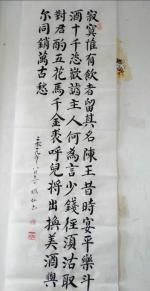 寂寞惟有飲者留其名陳王昔時宴平樂斗
酒十千恣歡謔主人何為言少錢徑須沽取
對君酌五花馬千金裘呼兒將出換美酒與
尔同銷萬古愁